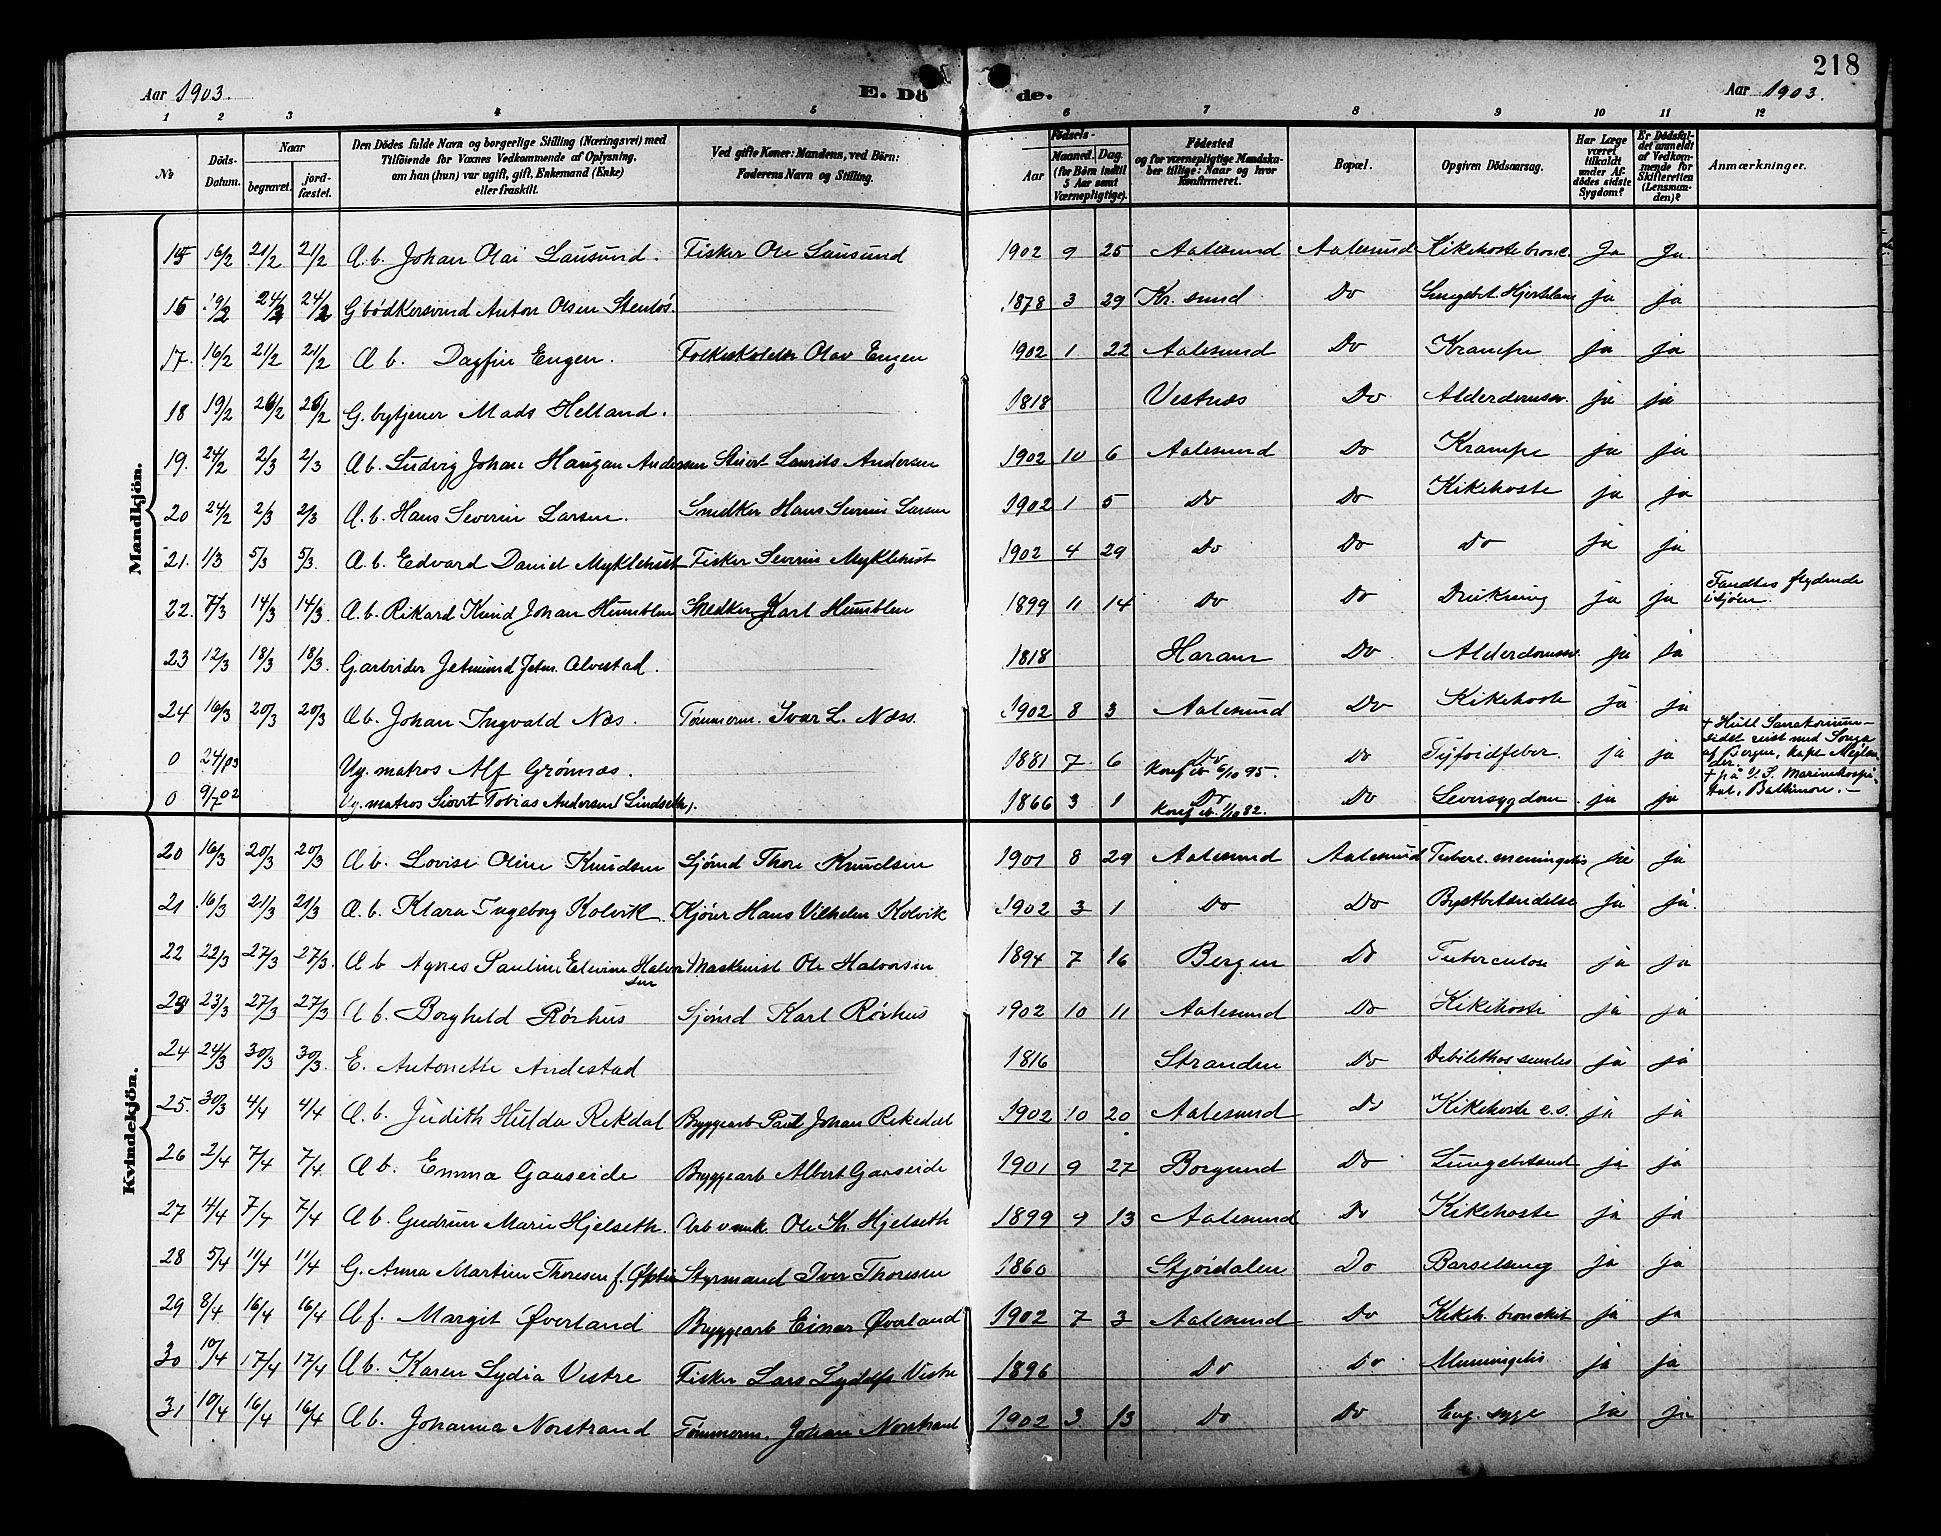 218
Aar 1903. E. Dö de. Aar 1903.
1 2 3 4 5 6 7 8 9 10 11 12
No Döds-Datum. Naar begravet. jordfæstet. Den Dödes fulde Navn og borgerlige Stilling (Næringsvei) med Tilföiende for Voxnes Vedkommende af Oplysning, om han (hun) var ugift, gift, Enkemand (Enke) eller fraskilt. Ved gifte Koner: Mandens, ved Börn: Faderens Navn og Stilling. Födsels- Aar Maaned. Dag. (for Börn indtil 5 Aar samt Værnepligtige). Födested og for værnepligtige Mandskaber tillige: Naar og hvor konfirmeret. Bopæl. Opgiven Dödsaarsag. Har Læge været tilkaldt under Afdödes sidste Sygdom? Er Dödsfaldet anmeldt af Vedkommende for Skifteretten (Lensmanden)? Anmærkninger.
Mandkjön.
15 16/2 21/2 21/2 A.b. Johan Olai Lausund. Fisker Ole Lausund 1902 9 25 Aalesund Aalesund Kikehoste bronc. Ja Ja.
16 19/2 24/2 24/2 G bødkersvend Anton Olsen Stenløs. 1878 3 29 Kr. sund Do ja ja
17. 16/2 21/2 21/2 A b. Dagfin Engen. Olav Engen 1902 1 22 Aalesund Do Krampe ja ja
18 19/2 26/2 26/2 G. bytjener Mads Helland. 1818 Vestnæs Do Alderdomssv. ja ja
19. 24/2 2/3 2/3 A b. Ludvig Johan Haugan Andersen Laurits Andersen 1902 10 6 Aalesund Do Krampe ja ja
20 24/2 2/3 2/3 A. b. Hans Severin Larsen. Snedker Hans Severin Larsen 1902 1 5 Do Do Kikehoste ja ja
21. 1/3 5/3 5/3. A. b. Edvard Daniel Myklebust Fisker Severin Myklebust 1902 4 29 Do Do Do ja ja
22. 7/3 14/3 14/3. A.b. Rikard Knud Johan Humblen Snedker Karl Humblen 1899 11 14 Do Do Drukning ja ja Fandtes flydende i sjøen.
23 12/3 18/3 18/3. G. Jetmund Jetm. Alvestad. 1818 Haram Do. Alderdomssv. ja ja
24 16/3 20/3 20/3 A b. Johan Ingvald Næs. Tømmerm. Ivar L. Næss 1902 8 3 Aalesund Do Kikehoste ja ja
0 24/1 03 Ug. matros Alf Grønnæs. 1881 7 6 Do Konf. ib. 6/10 95. Do Tyfoidfeber ja ja + Hull Sanatorium af Bergen, kapt.
0 9/7 02 Ug. matros Sivert Tobias Andersen Lindseth. 1866 3 1 Do Konf ib. 1/10 82. Do Leversygdom ja ja + på U. S. Marinehospital, Baltimore. –
Kvindekjön.
20 16/3 20/3 20/3 A b. Lovise Oline Knudsen Sjømd Thore Knudsen 1901 8 29 Aalesund Aalesund Tuberc. meningitis ja ja
21 16/3 21/3 21/3 A. b. Klara Ingeborg Kolvik. Hans Vilhelm Kolvik 1902 3 1 Do Do Brystbetændelse ja ja.
22 22/3 27/3 27/3. A b Agnes Pauline Halvorsen Maskinist Ole Halvorsen 1894 7 16 Bergen Do Tuberculose ja ja
23 23/3 27/3 27/3 A b. Borghild Rørhus Sjømd Karl Rørhus 1902 10 11 Aalesund Do Kikehoste ja ja
24 24/3 30/3 30/3. E. Antonette Andestad 1816 Stranden Do ja ja
25. 30/3 4/4 4/4 A. b. Judith Hulda Rekdal Bryggearb Paul Johan Rekdal 1902 10 20 Aalesund Do Kikehoste ja ja
26 2/4 7/4 7/4 A b. Emma Gaaseide Bryggearb Albert Gaaseide 1901 9 27 Borgund Do ja ja
27 4/4 7/4 7/4 A b. Gudrun Marie Hjelseth. Ole Kr. Hjelseth 1899 9 13 Aalesund Do Kikehoste ja ja
28 5/4 11/4 11/4 G. Anna Martine Thoresen Styrmand Iver Thoresen 1860 Stjørdalen Do Barselseng ja ja
29 8/4 16/4 16/4 A f. Margit Øverland Bryggearb Einar Øverland 1902 7 3 Aalesund Do Kikeh. bronchit ja ja
30 10/4 17/4 17/4 A b. Karen Lydia Vestre Fisker Lars Vestre 1896 Do Do Meningitis ja ja
31 10/4 16/4 16/4 A b. Johanna Norstrand Tømmerm. Johan Norstrand 1902 3 13 Do Do Eng. syge ja ja